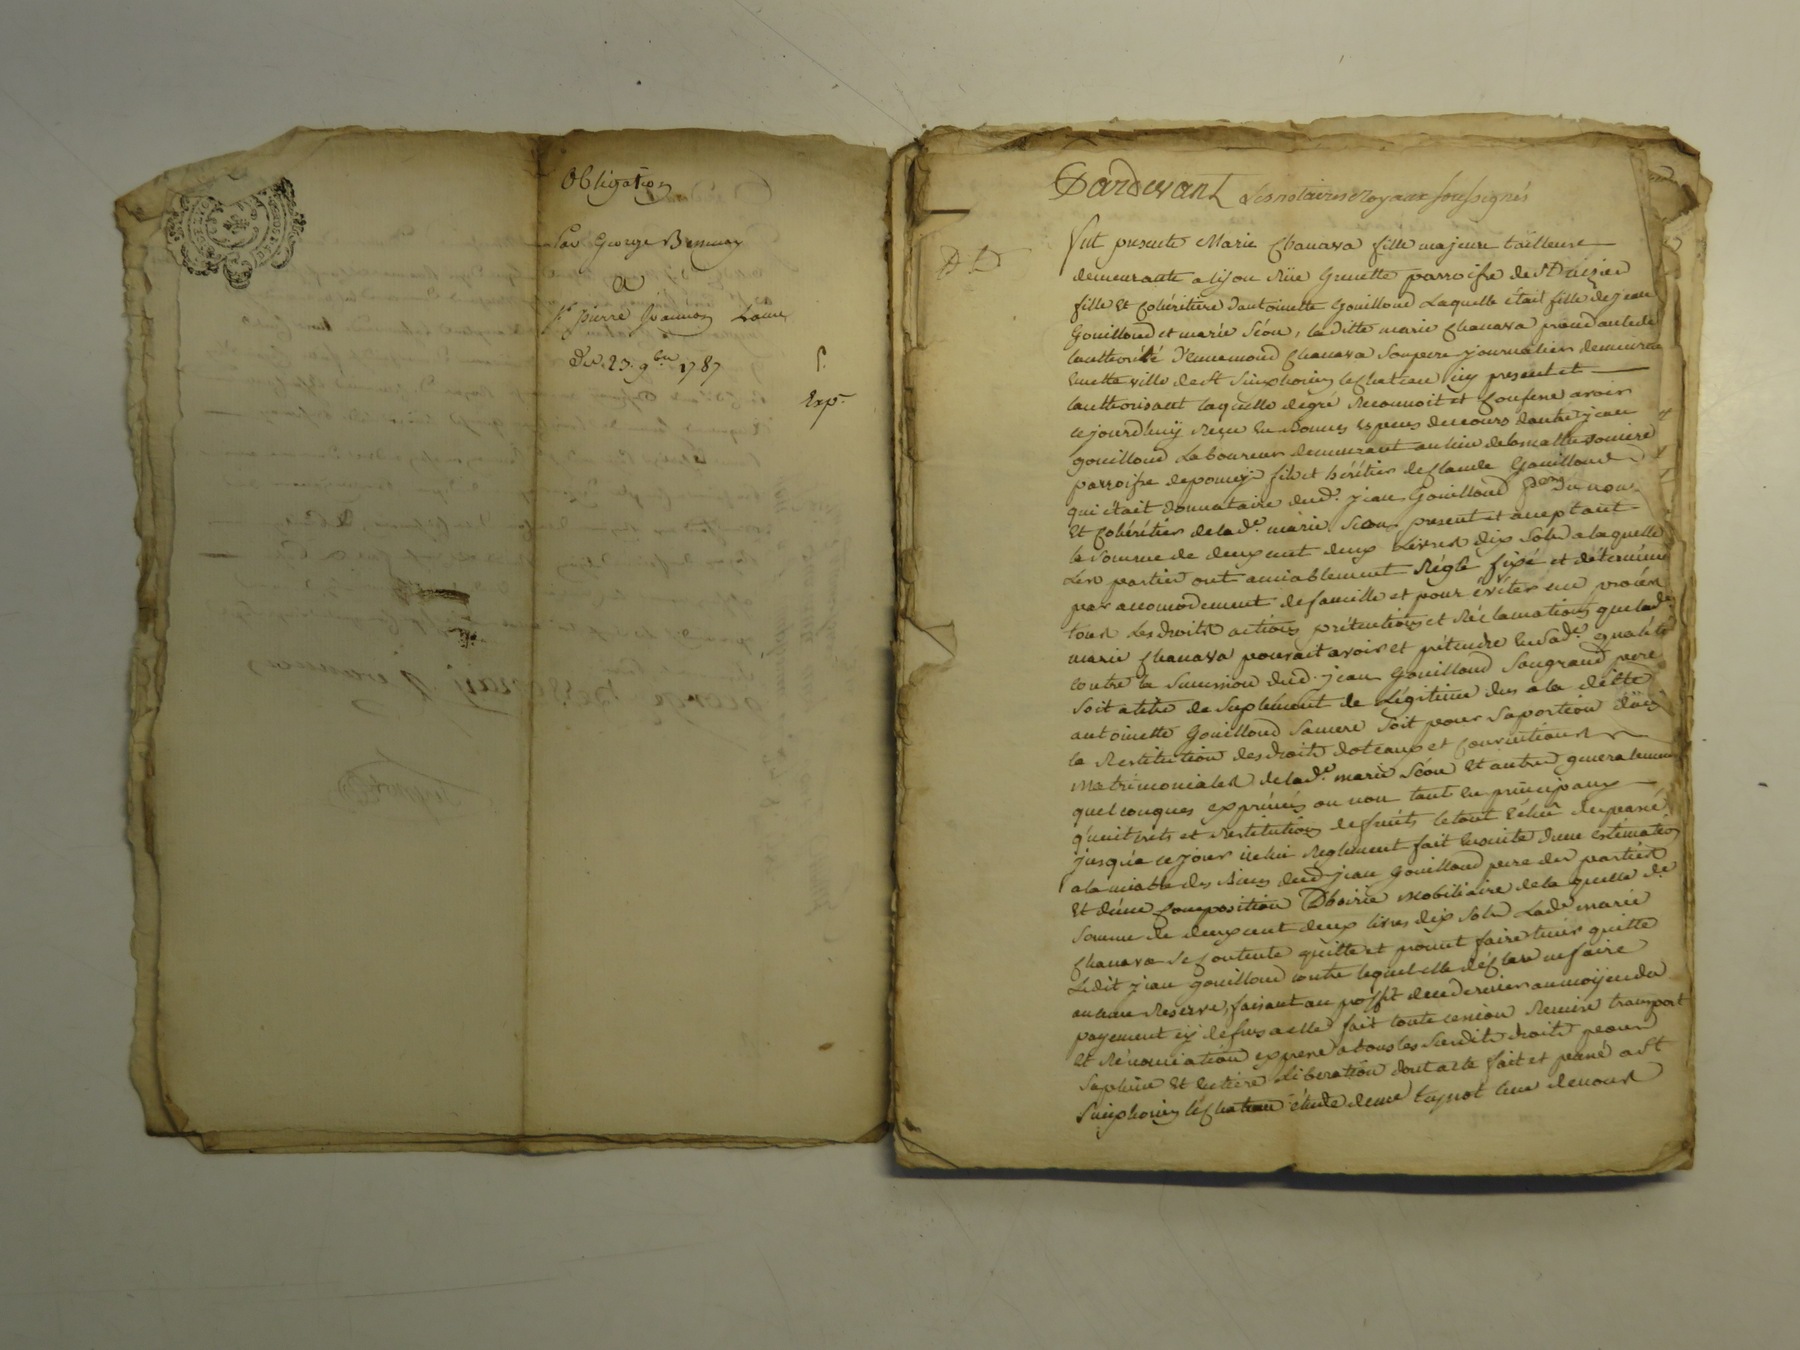 Obligation
Par George
a
Sr pierre
Du 23 9bre 1787
Exp.
Pardevant Les notaires Royaux soussignés
fut presente Marie Chanava fille majeure tailleuse
demeurante a lyon Rüe Grenette parroisse de St Nizier
fille Et Cohéritiere d'antoinette Gouilloud Laquelle était fille de jean
Gouilloud et marie Séon, la ditte marie Chanava procedante de
lauthorité d'ennemond Chanava son pere journalier demeurant
en cette ville de St Simphorien le Chateau icy present et
lauthorisant laquelle de gré Reconnoit et Confesse avoir
cejourd'huy Reçu En Bonnes Especes de cours dudit jean
gouilloud Laboureur demeurant au lieu de
parroisse de pomeÿ fils et héritier de Claude Gouilloud
qui était donnataire dud. jean Gouilloud du nom
Et Cohéritier de lade. marie Séon present et acceptant
la Somme de deux cent deux Livres dix Sols a laquelle
Les parties ont amiablement Réglé fixé et déterminé
par accomodement de famille et pour éviter un procés
tous Les droits actions prétentions et Réclamations que lade.
marie Chanava pourrait avoir et prétendre En Sade. qualité
contre la Succession dud. jean Gouilloud Son grand pere
Soit a titre de Suplement de Légitime dus a la ditte
antoinette Gouilloud Sa mere Soit pour Sa portion
la Restitution des droits doteaux et Conventions
Matrimoniales de lade. marie Séon Et autres generalement
quelconques exprimés ou non tant En principaux
qu'intrets et Restitution de fruits le tout Echû du passé
jusqu'a ce jour icelui Reglement fait Ensuite d'une éstimation
a lamiable des Biens dud. jean Gouilloud pere des parties
Et d'une Composition D'hoirie Mobiliaire de la quelle de.
Somme de deux cent deux livres dix Sols Lade. marie
Chanava Se Contente quitte et promet faire tenir quitte
Ledit jean gouilloud contre lequel elle déclare ne faire
aucune Reserve, faisant au proffit de ce dernier au moÿen du
payement cÿ dessus a elle fait toute cession Remise transport
Et Rénonciation expresse a tous les Susdits droits pour
Sa pleine Et Entiere Libération dont acte fait et passé a St
Simphorien le Chateau étude de me teynot l'un de nous